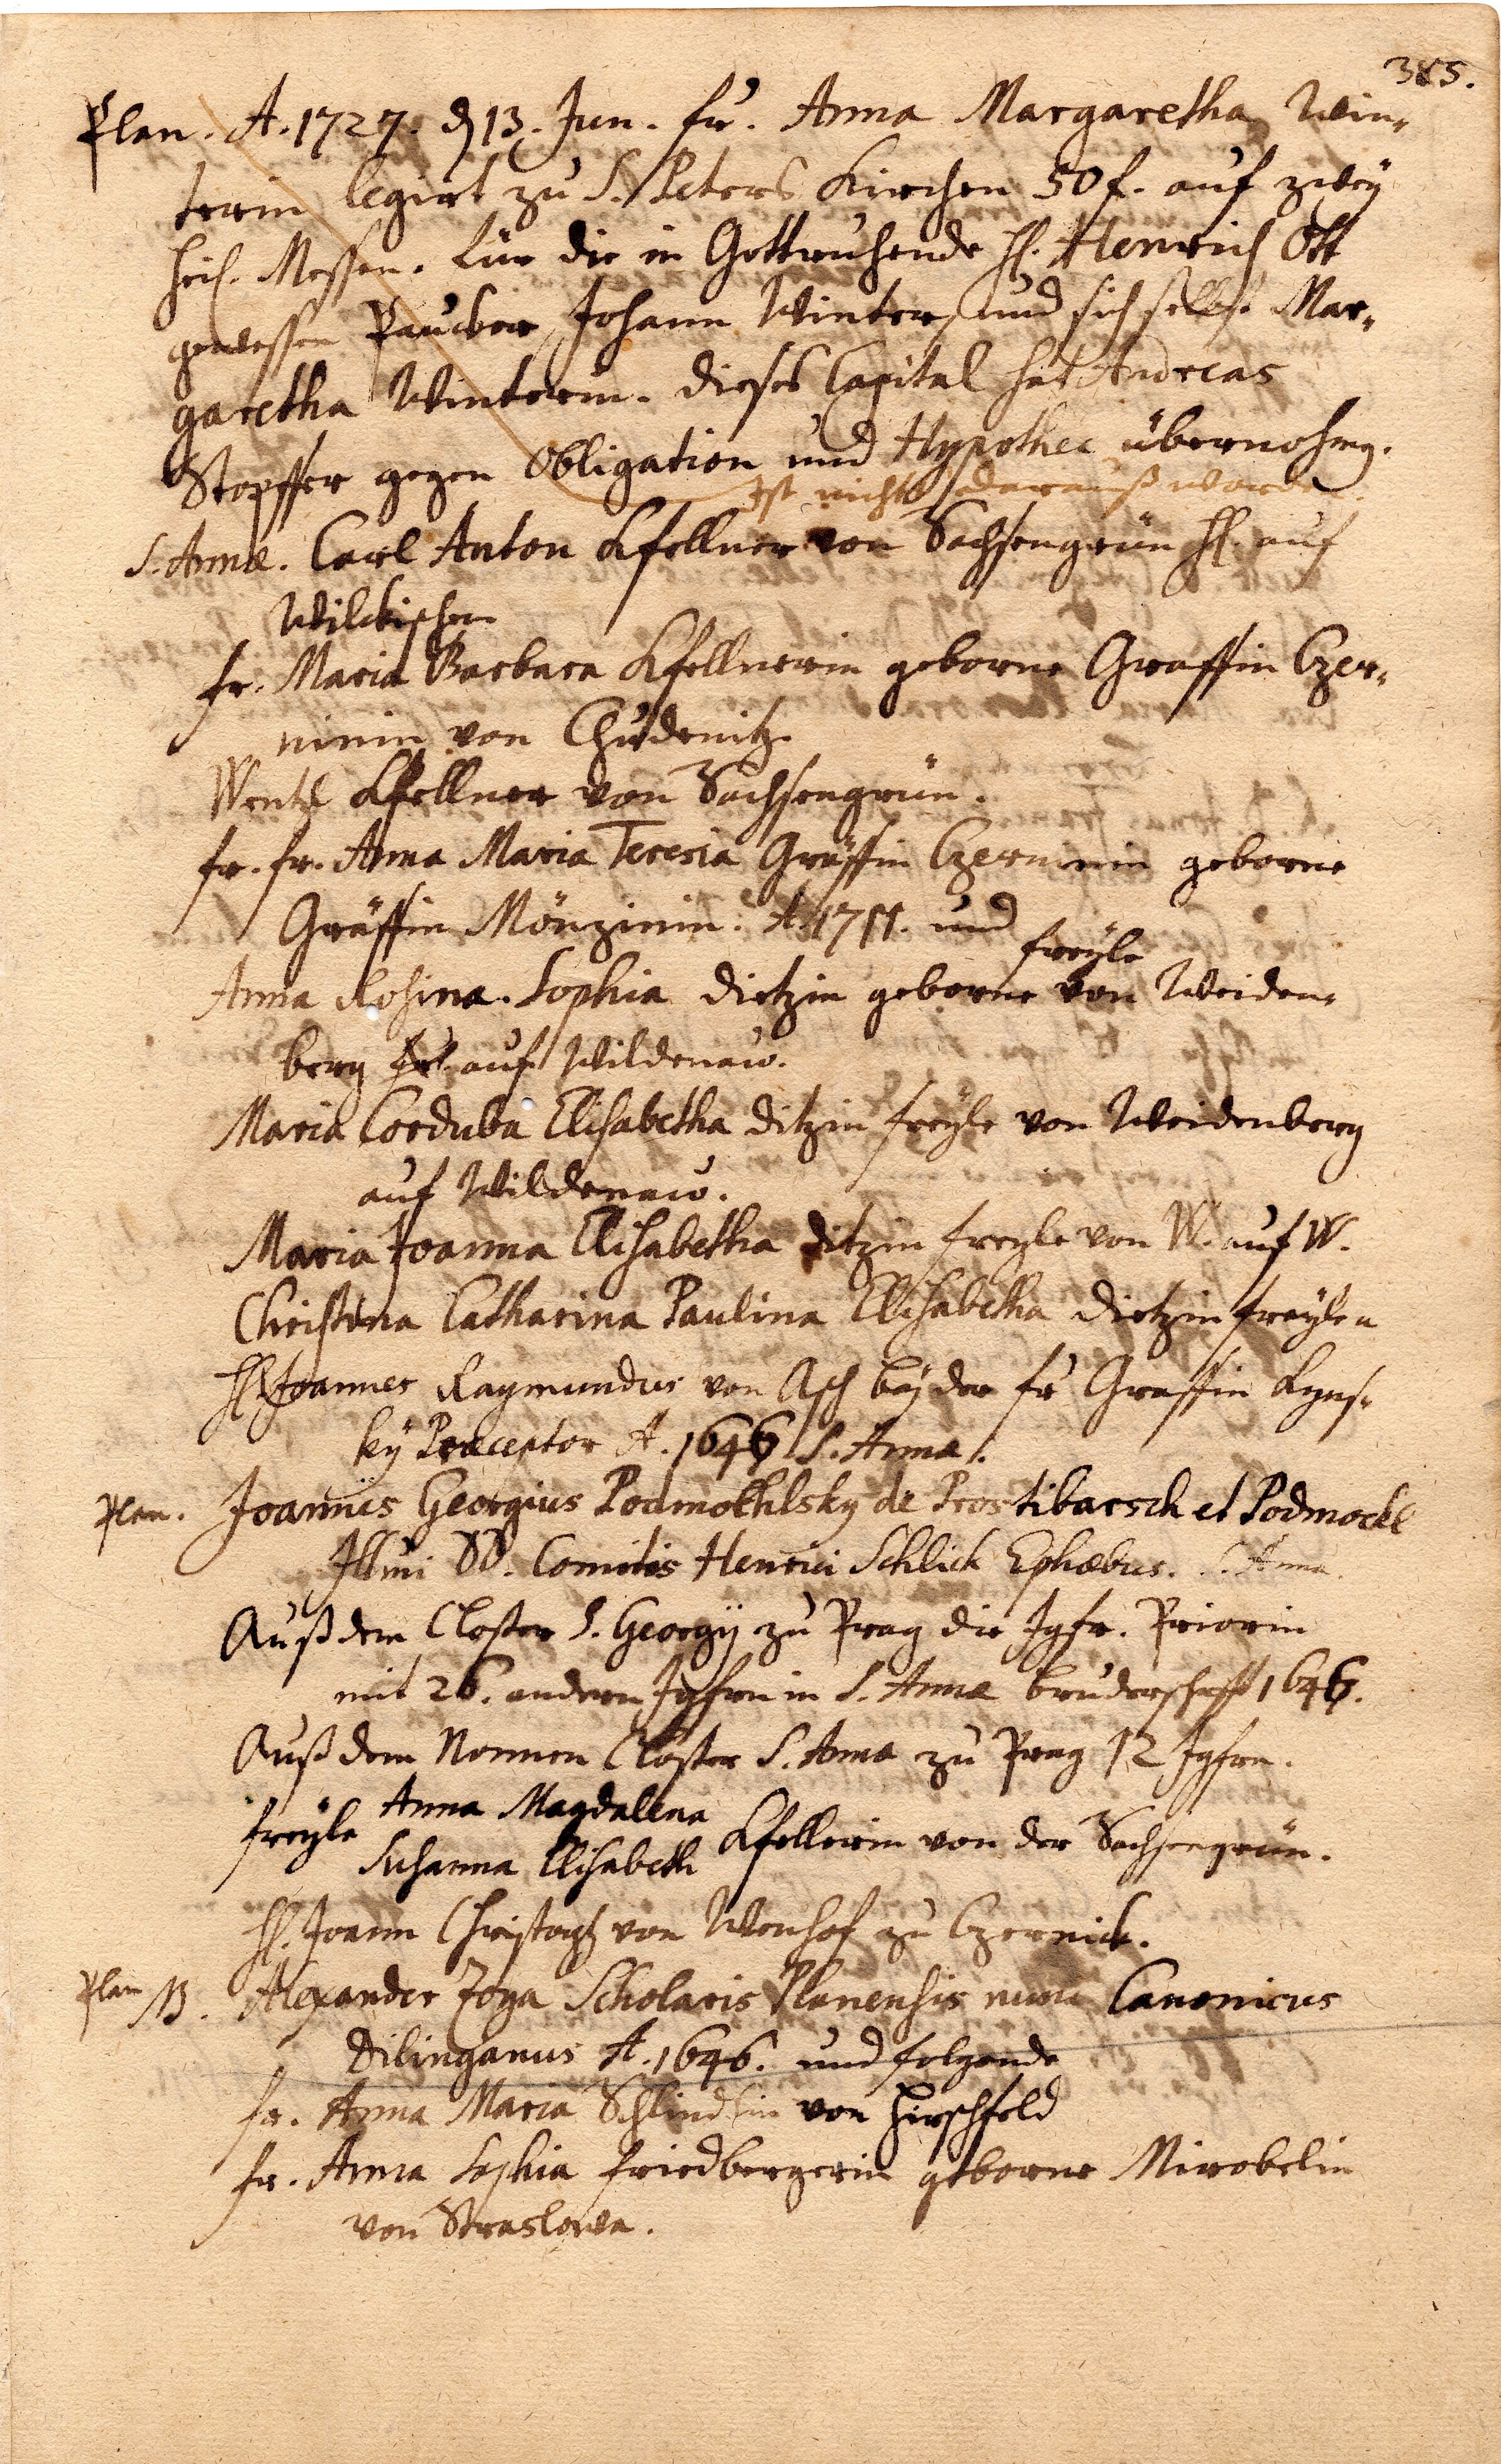 385.
Plan. A. 1727. d 13. Jun. fr. Anna Margaretha Win-
terin legirt zu S. Peters Kirchen 50 f. auf zwey
heil. Messen. für die in Gott ruhende H. Henrich Ott
gewessen Paucker, Johann Winter, und sich selbst Mar-
garetha Winterin. dieses Capital hat Andreas
Stopffer gegen Obligation und Hypothec übernohmen.
Ist nichts darauß worden.
S. Annæ. Carl Anton Kfellner von Sachsengrün H. auf
Wilckischen
fr. Maria Barbara Kfellnerin geborne Graffin Czer-
ninin von Chudenitz.
Wentzl Kfellner von Sachsengrün.
fr. fr. Anna Maria Teresia Gräffin Czerninin geborne
Gräffin Mönzinin. A. 1711. und
freyle
Anna Rosina. Sophia Dietzin geborne von Weiden-
berg auf Wildenaw.
Maria Corduba Elisabetha Ditzin freyle von Weidenberg
auf Wildenaw.
Maria Joanna Elisabetha Ditzin freyle von W. auf W.
Christina Catharina Paulina Elisabetha Dietzin freylen
H. Joannes Raymundus von Asch bey der fr Graffin Kyns-
ky Præceptor A. 1646 S. Annæ.
Plan. Joannes Georgius Podmokhlsky de Prostibarsch et Podmockl
Illmi DD. Comitis Henrici Schlick Ephœbus. S. Anna.
Auß dem Closter S. Georgij zu Prag die Jgfr. Priorin
mit 26. andern Jgfrn in S. Annæ bruderschafft 1646.
Auß dem Nonnen Closter S. Anna zu Prag 12 Jgfrn.
freyle Anna Magdalena
Susanna Elisabeth Kfellerin von der Sachsengrün.
H. Joann Christoph von Wenhof zu Czernick.
Plan NB. Alexander Zoga Scholaris Planensis nunc Canonicus
Dilinganus A. 1646. und folgende
fr. Anna Maria von Hirschfeld
fr. Anna Sophia Friedbergerin geborne Mirobelin
von Straslowa.